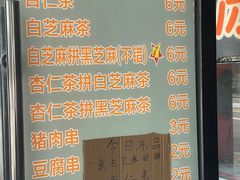 杏仁茶 6元
白芝麻茶 6元
白芝麻拼黑芝麻(不错) 6元
杏仁茶拼白芝麻茶 6元
杏仁茶拼黑芝麻茶 6元
猪肉串 3元
豆腐串 2元
2元
今日